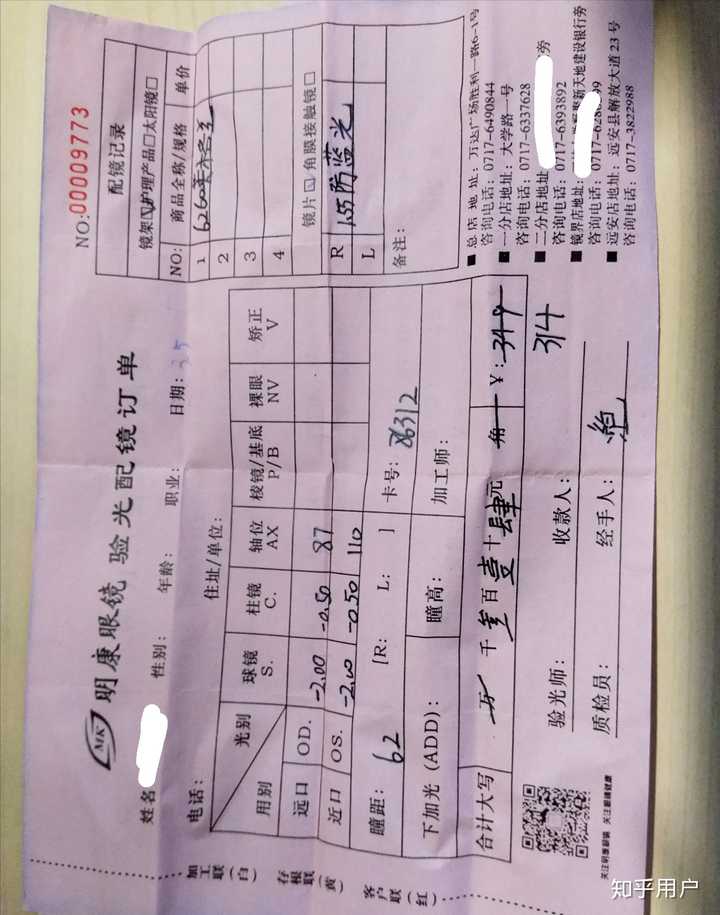 MK 明康眼镜 验光配镜订单
NO:00009773
姓名
性别:
年龄:
职业:
日期:
电话:
住址/单位:
用别
光别
球镜 S.
柱镜 C.
轴位 AX
棱镜/基底 P/B
裸眼 NV
矫正 V
远口 OD. -2.00 -0.50 87
近口 OS. -2.00 -0.50 110
瞳距: 62 [R: L: ] 卡号: 86312
下加光(ADD): 瞳高: 加工师:
合计大写 万 千 叁 百 壹 十 肆 元 角 ¥: 349
314
验光师: 收款人:
质检员: 经手人:
关注明康眼镜 关注眼睛健康
加工联(白)
存根联(黄)
客户联(红)
配镜记录
镜架☑护理产品□太阳镜□
NO: 商品全称/规格 单价
1
2
3
4
镜片☑角膜接触镜□
R 1.55防蓝光
L
备注:
■总店地址:万达广场胜利一路6-1号
咨询电话:0717-6490844
■一分店地址:大学路一号
咨询电话:0717-6337628
■二分店地址 旁
咨询电话:0717-6393892
■镜界店地址: 新天地建设银行旁
咨询电话:0717-628
■远安店地址:远安县解放大道23号
咨询电话:0717-3822988
知乎用户